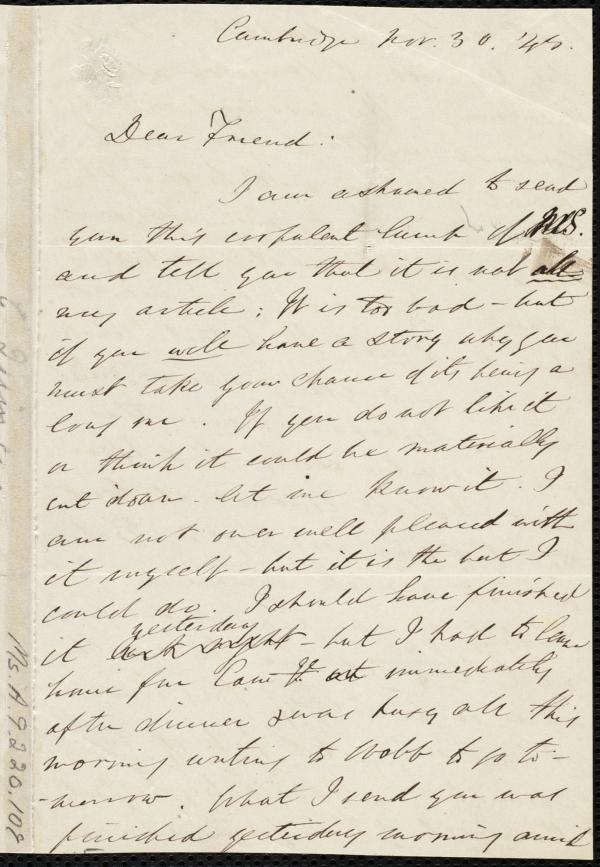 Cambridge Nov. 30. '45.
Dear Friend:
I am ashamed to send
you this corpulent lump of MS.
and tell you that it is not all
my article; It is too bad - but
if you will have a story why you
must take your chance of its being a
long one. If you do not like it
or think it could be materially
cut down - let me know it. I
am not over well pleased with
it myself - but it is the best I
could do. I should have finished
it last night yesterday - but I had to leave
home for Camb. immediately
after dinner & was busy all this
morning writing to Webb to go to-
-morrow. What I send you was
finished yesterday morning amid
Ms. A 9.2.20.108